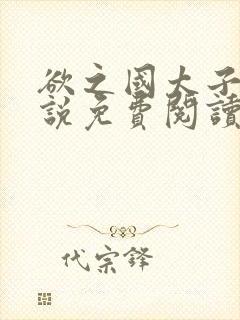 欲之國大子
說免費閱讀
代宗鋒